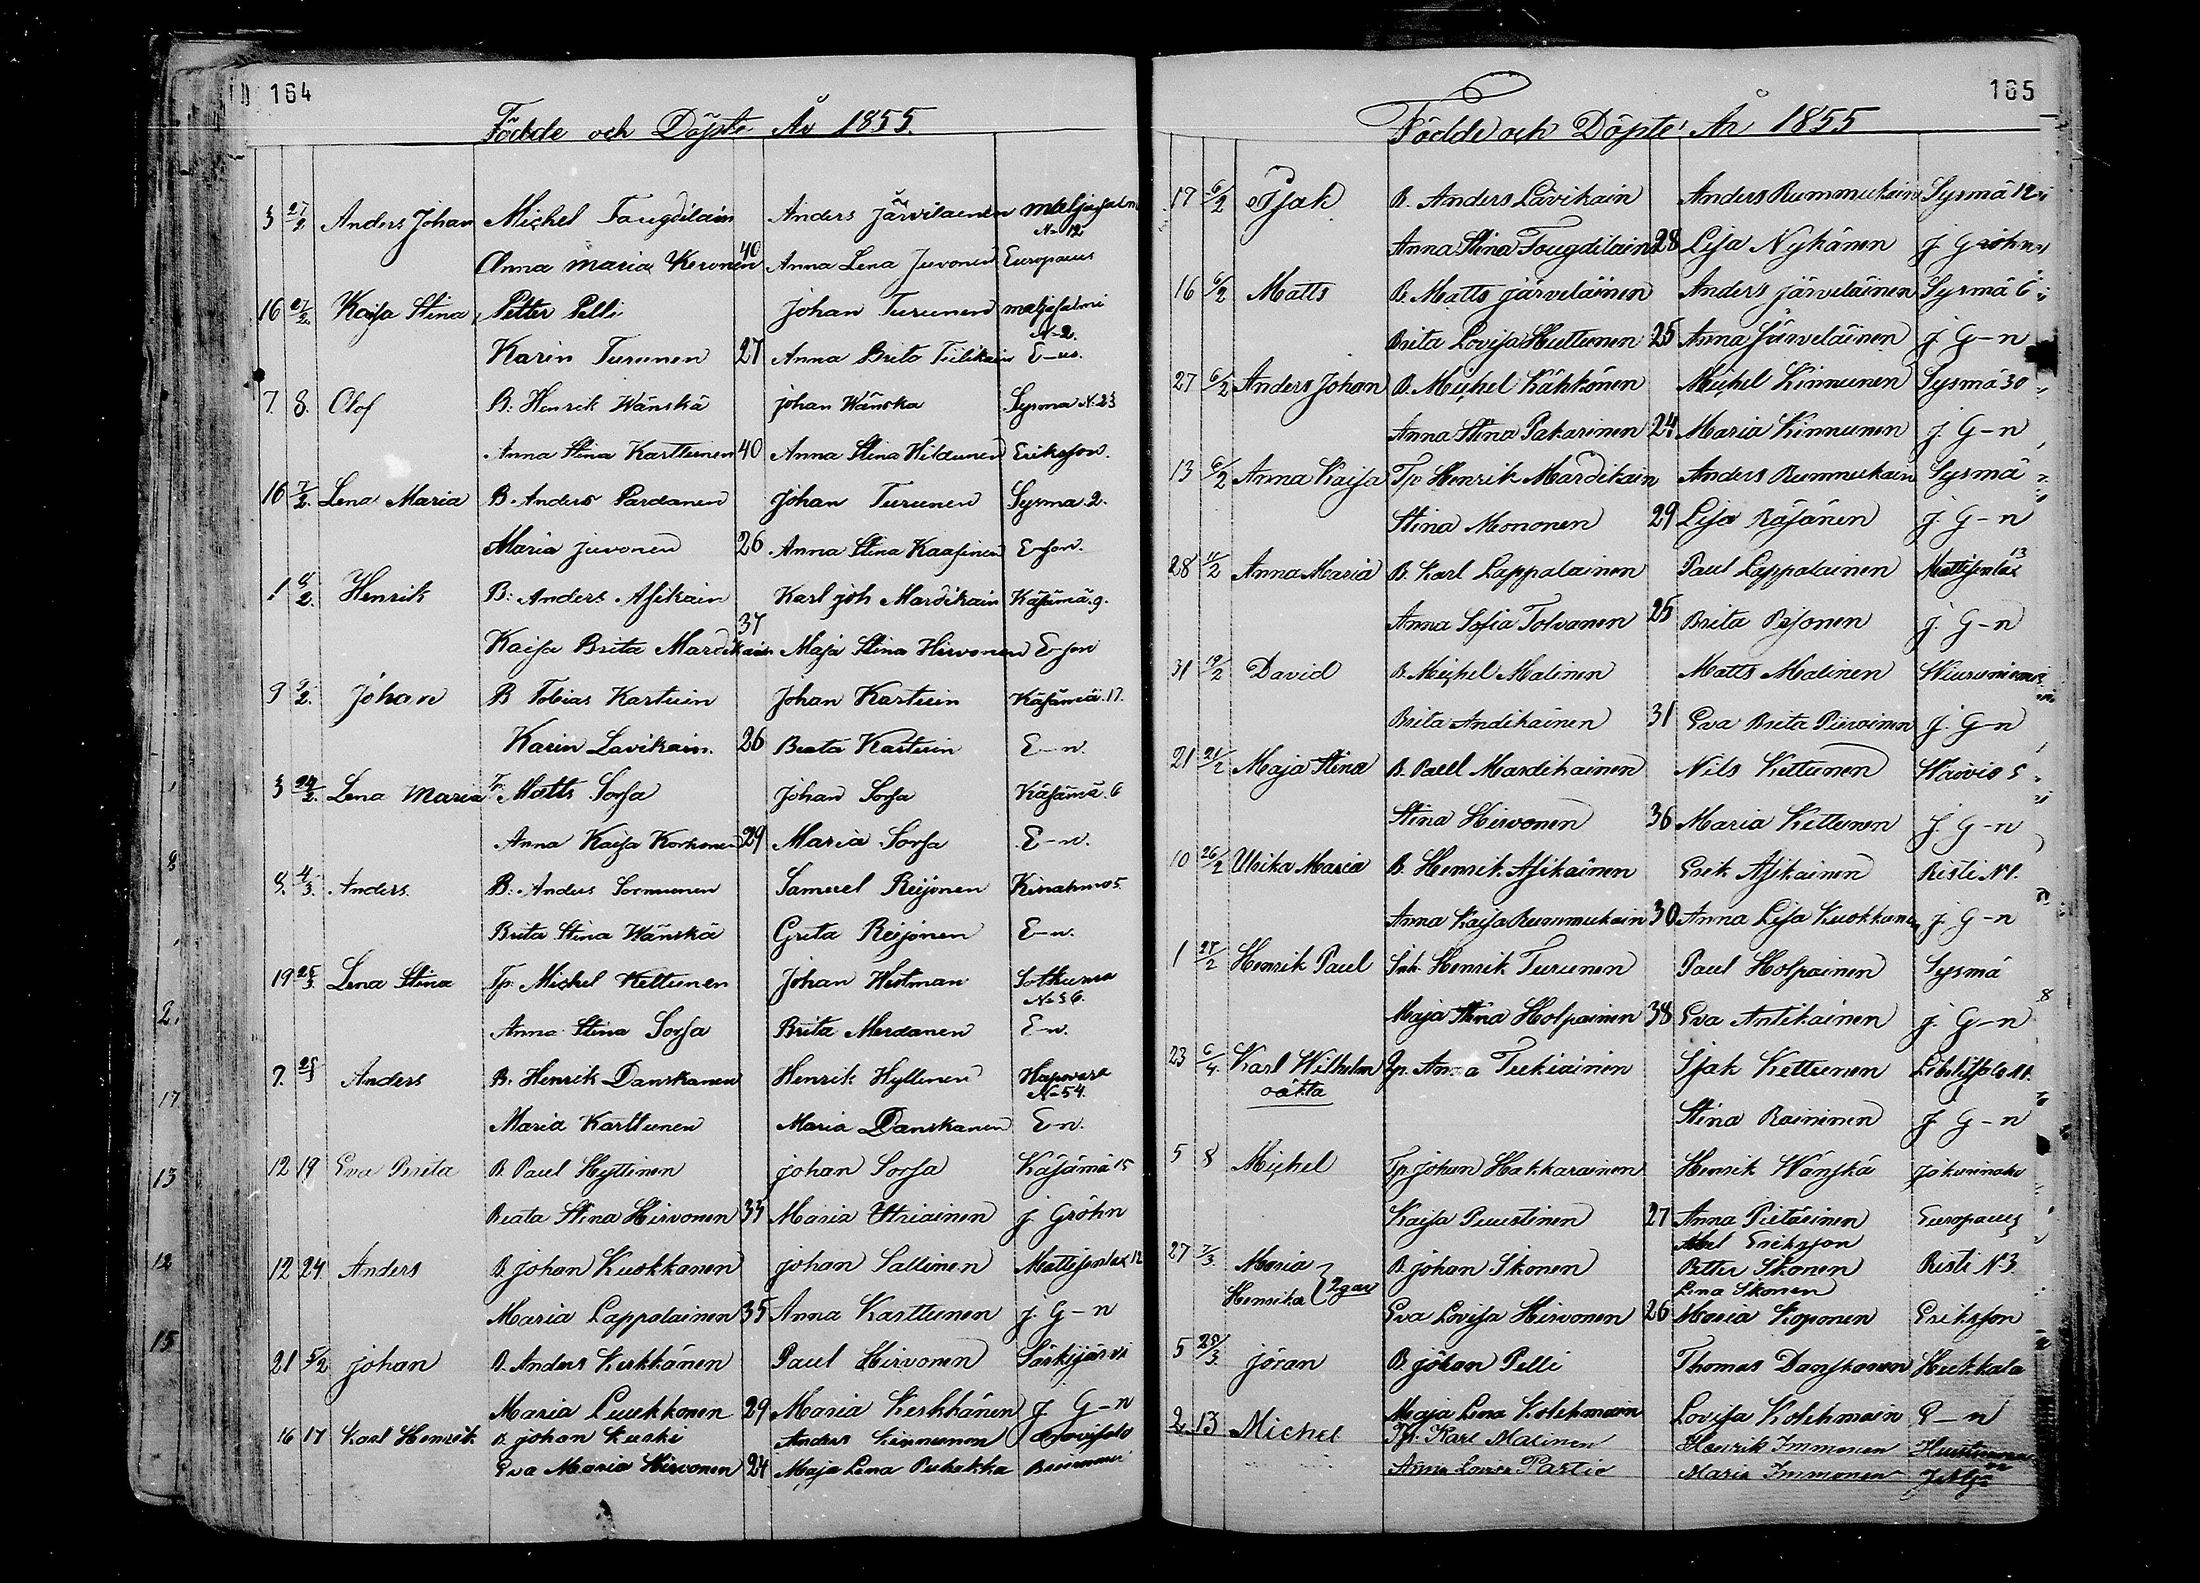 164
Födde och Döpte År 1855.
3 27/2 Anders Johan Michel Taugdilain Anders Järvilainen maljasalmi
N-12
Anna Maria Keronen 40 Anna Lena Juvonen Europaeus
16 27/2 Kaisa Stina Petter Pelli Johan Turunen maljasalmi
N-2.
Karin Turunen 27 Anna Brita Tiilikain E-us.
7. 8. Olof B: Henrik Wänskä Johan Wänska Sysma N.23
Anna Stina Karttunen 40 Anna Stina Hildunen Eriksson.
16 7/2. Lena Maria B. Anders Pardanen Johan Turunen Sysma 2.
Maria Juvonen 26 Anna Stina Kaasinen E-son.
1 8/2. Henrik B: Anders Asikain Karl Joh Mardikain Käsämä.9.
Kaisa Brita Mardikain 37 Maja Stina Hirvonen E-son
9 9/2. Johan B Tobias Kartuin Johan Kartuin Käsämä.17.
Karin Lavikain. 26 Beata Kartuin E-n.
3 24/2. Lena Maria Tp. Matts Sorsa Johan Sorsa Käsämä.6
Anna Kaisa Korhonen 29 Maria Sorsa E-n.
8. 4/3. Anders. B: Anders Sormunen Samuel Reijonen Kinahmo 5.
Brita Stina Wänskä Greta Reijonen E-n.
19 25/3 Lena Stina Tp. Michel Kettunen Johan Westman Sotkuma
N-36.
Anna Stina Sorsa Brita Mardanen E-n.
7. 25/3 Anders B. Henrik Danskanen Henrik Hyttinen Hapovara
N-54.
Maria Karttunen Maria Danskanen E-n.
12 19 Eva Brita B. Paul Hyttinen Johan Sorsa Käsämä 15
Beata Stina Hirvonen 33 Maria Utriainen J. Gröhn
12 24 Anders B. Johan Kuokkanen Johan Sallinen Mattisenlax 12
Maria Lappalainen 35 Anna Karttunen J. G-n
21 5/2 Johan B. Anders Kerkkänen Paul Hirvonen Särkijärvi
Maria Luukkonen 29 Maria Kerkkänen J G-n
16 17 Karl Henrik B Johan Kuski Anders Kinnunen
Eva Maria Hirvonen 24 Maja Lena Puhakka
8
2.
17
13
12
15
165
Födde och Döpte År 1855
17 6/2 Isak B. Anders Lävikain Anders Rummukain Sysmä 12
Anna Stina Tougdilain 28 Lisa Nykänen J. Gröhn
16 6/2 Matts B. Matts Järveläinen Anders Järveläinen Sysmä 6
Brita Lovisa Huttunen 25 Anna Järveläinen J. G-n
27 6/2 Anders Johan B. Michel Kähkönen Michel Kinnunen Sysmä 30
Anna Stina Pakarinen 24 Maria Kinnunen J. G-n
13 6/2 Anna Kaisa Tp. Henrik Mardikain Anders Rummukain Sysmä
Stina Mononen 29 Lisa Räsänen J. G-n
28 11/2 Anna Maria B. Karl Lappalainen Paul Lappalainen Mattisenlax 13
Anna Sofia Tolvanen 25 Brita J. G-n
31 19/2 David B. Michel Malinen Matts Malinen Wiuruniemi
Brita Andikäinen 31 Eva Brita Piiroinen J. G-n
21 21/2 Maja Stina B. Paul Mardikainen Nils Kettunen 5
Stina Hirvonen 36 Maria Kettunen J. G-n
10 26/2 Ulrika Maria B. Henrik Asikainen Erik Asikainen Risti N1.
Anna Kaisa Rummukain 30 Anna Lisa Kuokkanen J G-n
1 27/2 Henrik Paul Inh. Henrik Turunen Paul Holpainen Sysmä
Maja Stina Holpainen 38 Eva Antikäinen J. G-n
23 6/4 Karl Wilhelm Anna Tukiainen Isak Kettunen
oäkta
Stina Raininen J G-n
5 8 Michel Tp. Johan Hakkarainen Henrik Wänskä
Kaisa Puustinen 27 Anna Pietärinen Europaeus
Abel Eriksson
27 7/3 Maria B. Johan Ikonen Petter Ikonen Risti N3
Henrika Lena Ikonen
Eva Lovisa Hirvonen 26 Maria Koponen Eriksson
5 25/3 Jöran B. Johan Pelli Thomas Danskanen Huikkala
Maja Lena Kolehmain Lovisa Kolehmain E-n
2. 13 Michel Tp. Karl Malinen Henrik Immonen
Anna Lovisa Partio Maria Immonen